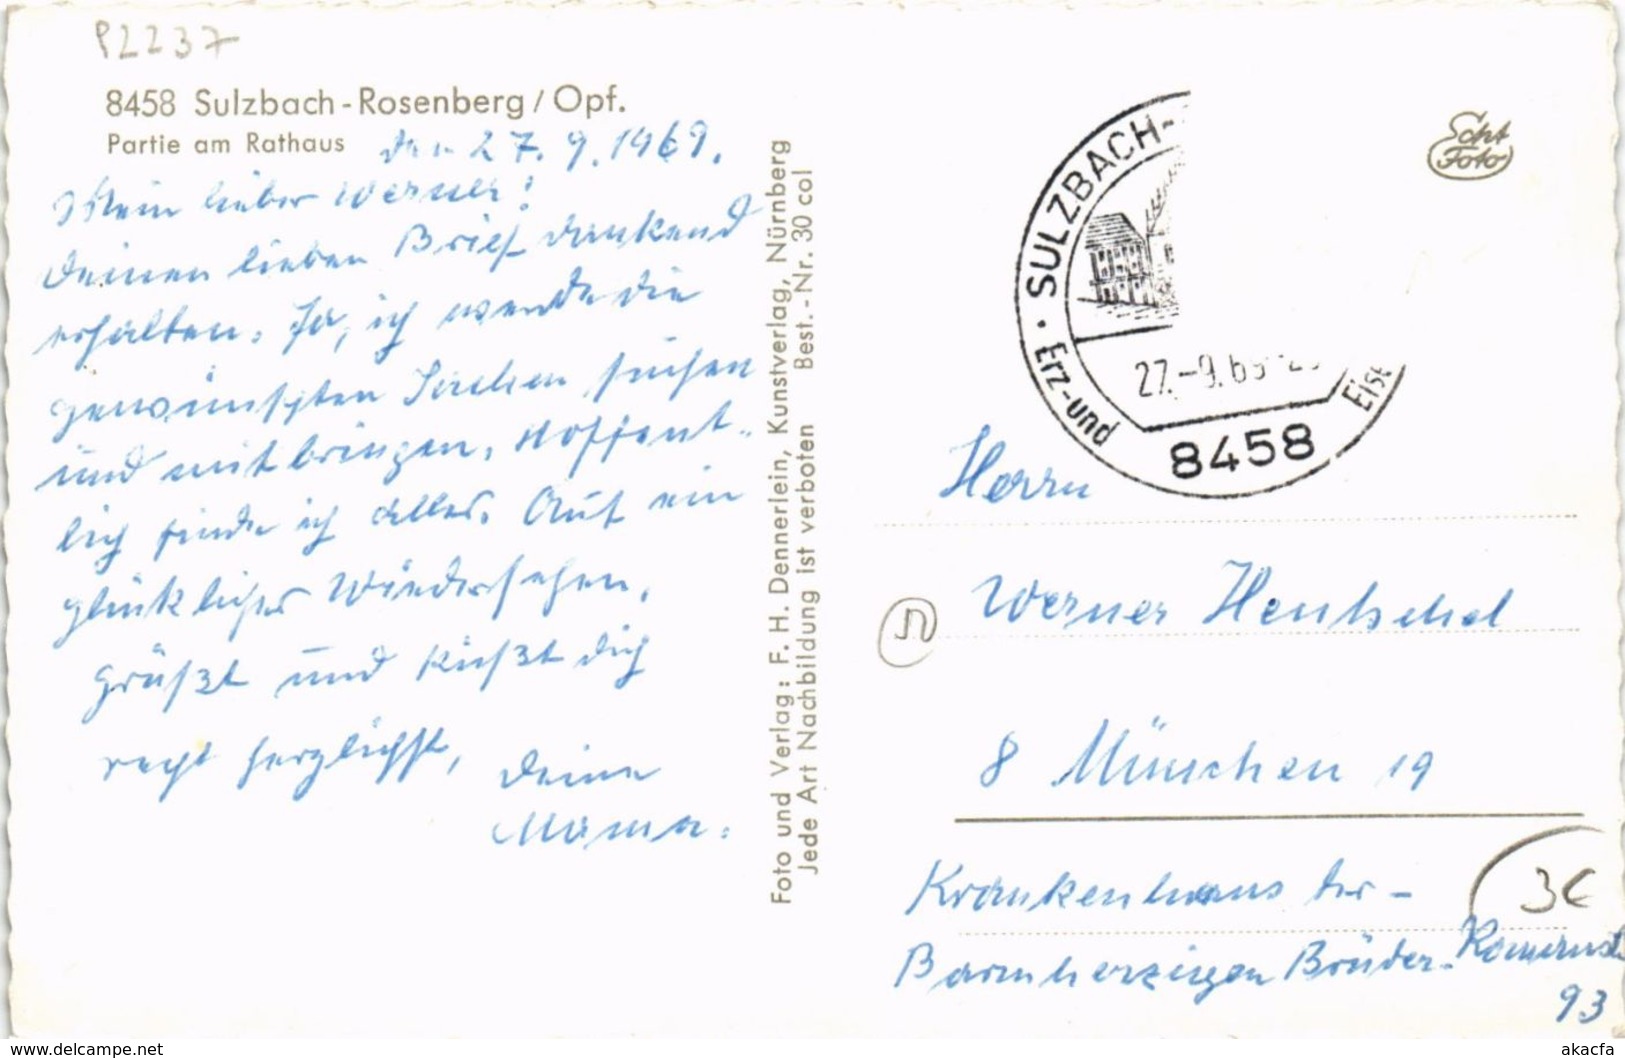 P2237
8458 Sulzbach-Rosenberg / Opf.
Partie am Rathaus
den 27. 9. 1969.
Mein lieber Werner!
Deinen lieben Brief dankend
erhalten. Ja, ich werde die
gewünschten Sachen suchen
und mitbringen. Hoffent-
lich finde ich alles. Auf ein
glückliches Wiedersehen,
grüßt und küßt dich
recht herzlichst,
Deine
Mama.
Foto und Verlag: F. H. Dennerlein, Kunstverlag, Nürnberg
Jede Art Nachbildung ist verboten Best.-Nr. 30 col
Echt
Foto
SULZBACH-
Erz- und
Eise
27.-9.69-2
8458
Herrn
Werner Hentschel
8 München 19
Krankenhaus der-
Barmherzigen Brüder. Romanst
93
3€
www.delcampe.net
akacfa